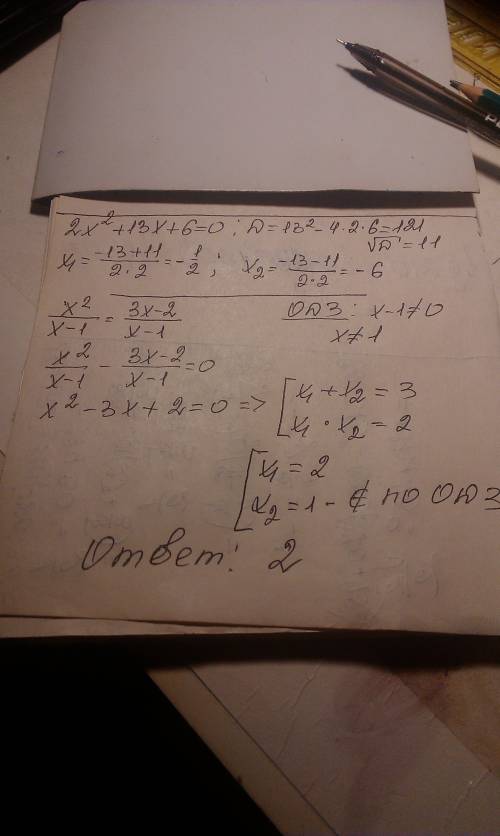 2x²+13x+6=0; D=13²-4·2·6=121
√D=11
x₁=(-13+11)/(2·2)=-1/2; x₂=(-13-11)/(2·2)=-6
x²/(x-1)=(3x-2)/(x-1) ОДЗ: x-1≠0
x≠1
x²/(x-1)-(3x-2)/(x-1)=0
x²-3x+2=0 => [x₁+x₂=3
[x₁·x₂=2
[x₁=2
[x₂=1-∉ ПО ОДЗ
Ответ: 2